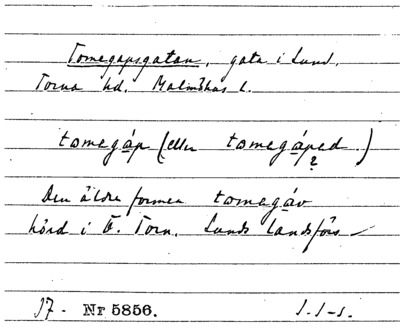 Tomegapsgatan, gata i Lund.
Torna hd. Malmöhus l.
tomegáp (eller tomegáped.)
?
Den äldre formen tomegáv
hörd i Ö. Torn. Lunds landsförs
17. Nr 5856.